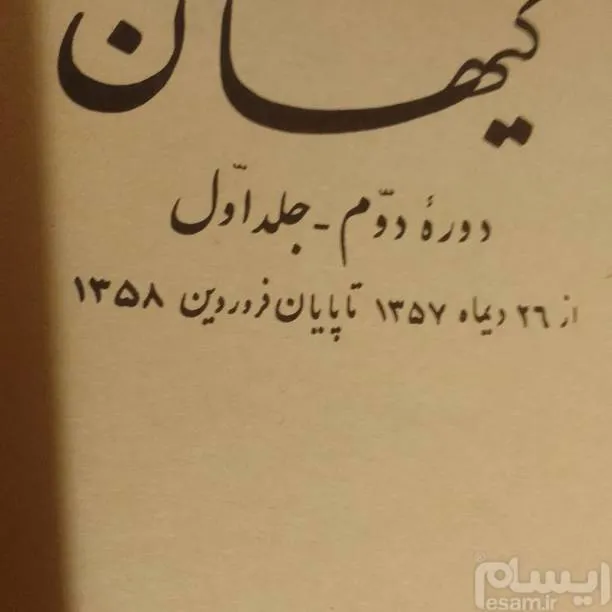 کیهان
دورهٔ دوّم - جلد اوّل
از ۲۶ دیماه ۱۳۵۷ تا پایان فروردین ۱۳۵۸
ایسام
esam.ir